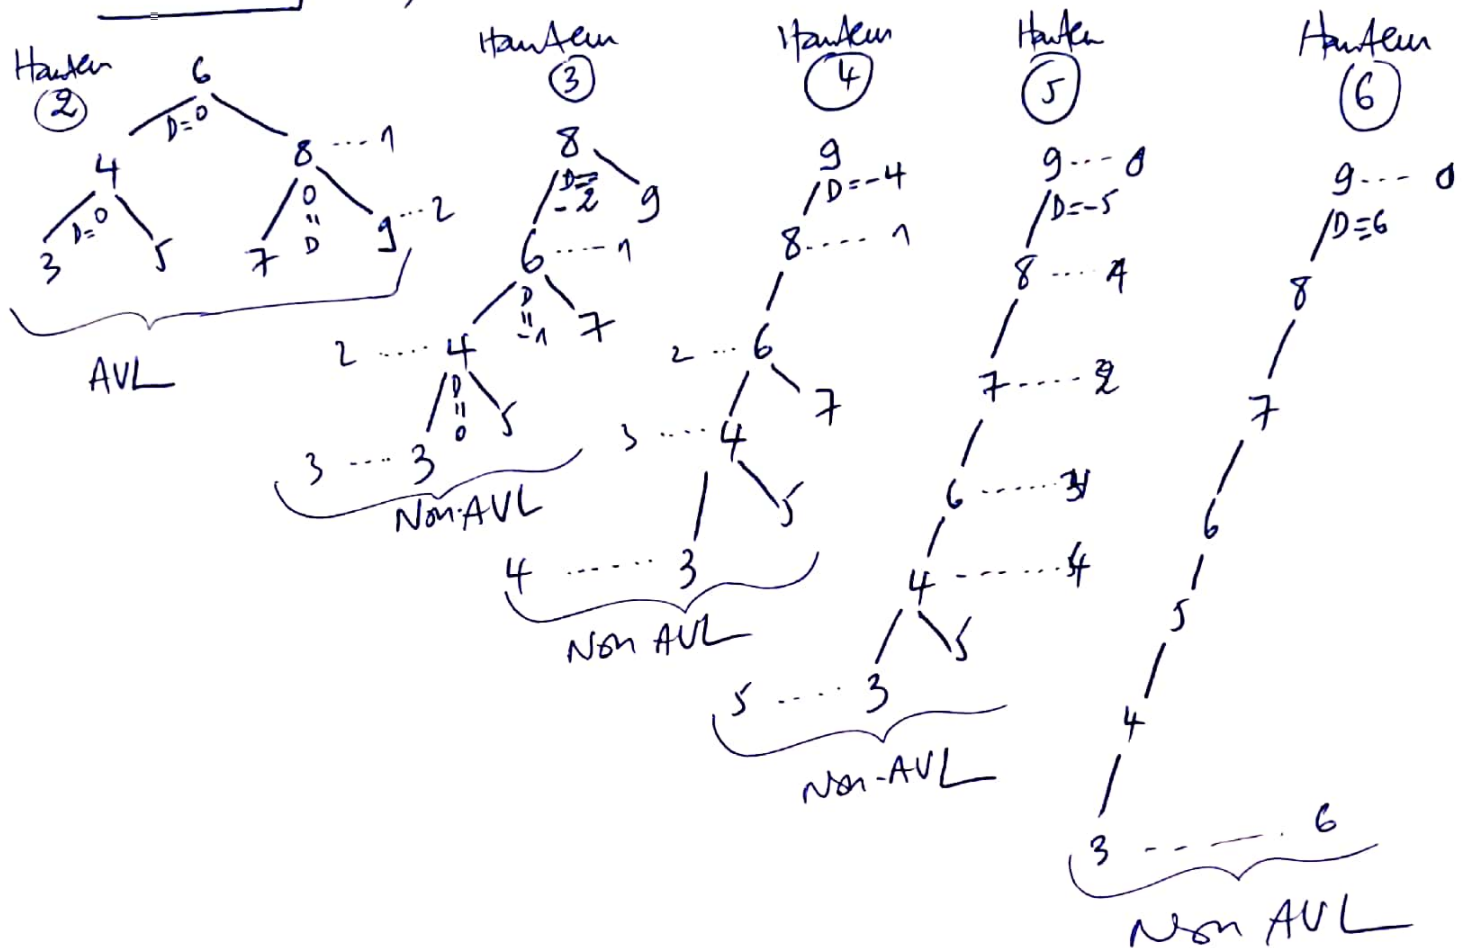 Hauteur
②
6
D=0
4
8 ---- 1
D=0
0
=
D
3
5
7
9 --- 2
AVL
Hauteur
③
8
D=-2
9
6 ----- 1
D
=
-1
2 ----- 4
7
D
=
0
5
3 ---- 3
Non-AVL
Hauteur
④
9
D=-4
8 ---- 1
2 --- 6
7
3 ---- 4
5
4 ------ 3
Non AVL
Hauteur
⑤
9 --- 0
D=-5
8 ---- 1
7 ----- 2
6 ------ 3
4 ------- 4
5
5 ---- 3
Non-AVL
Hauteur
⑥
9 --- 0
D=6
8
7
6
5
4
3 ------ 6
Non AVL